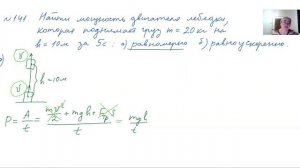 №141. Найти мощность двигателя лебёдки,
которая поднимает груз m = 20 кг на
h = 10м за 5с. а) равномерно б) равноускоренно
v
h = 10м
v
P = A/t = (mv²/2 + mgh + )/t = mgh/t